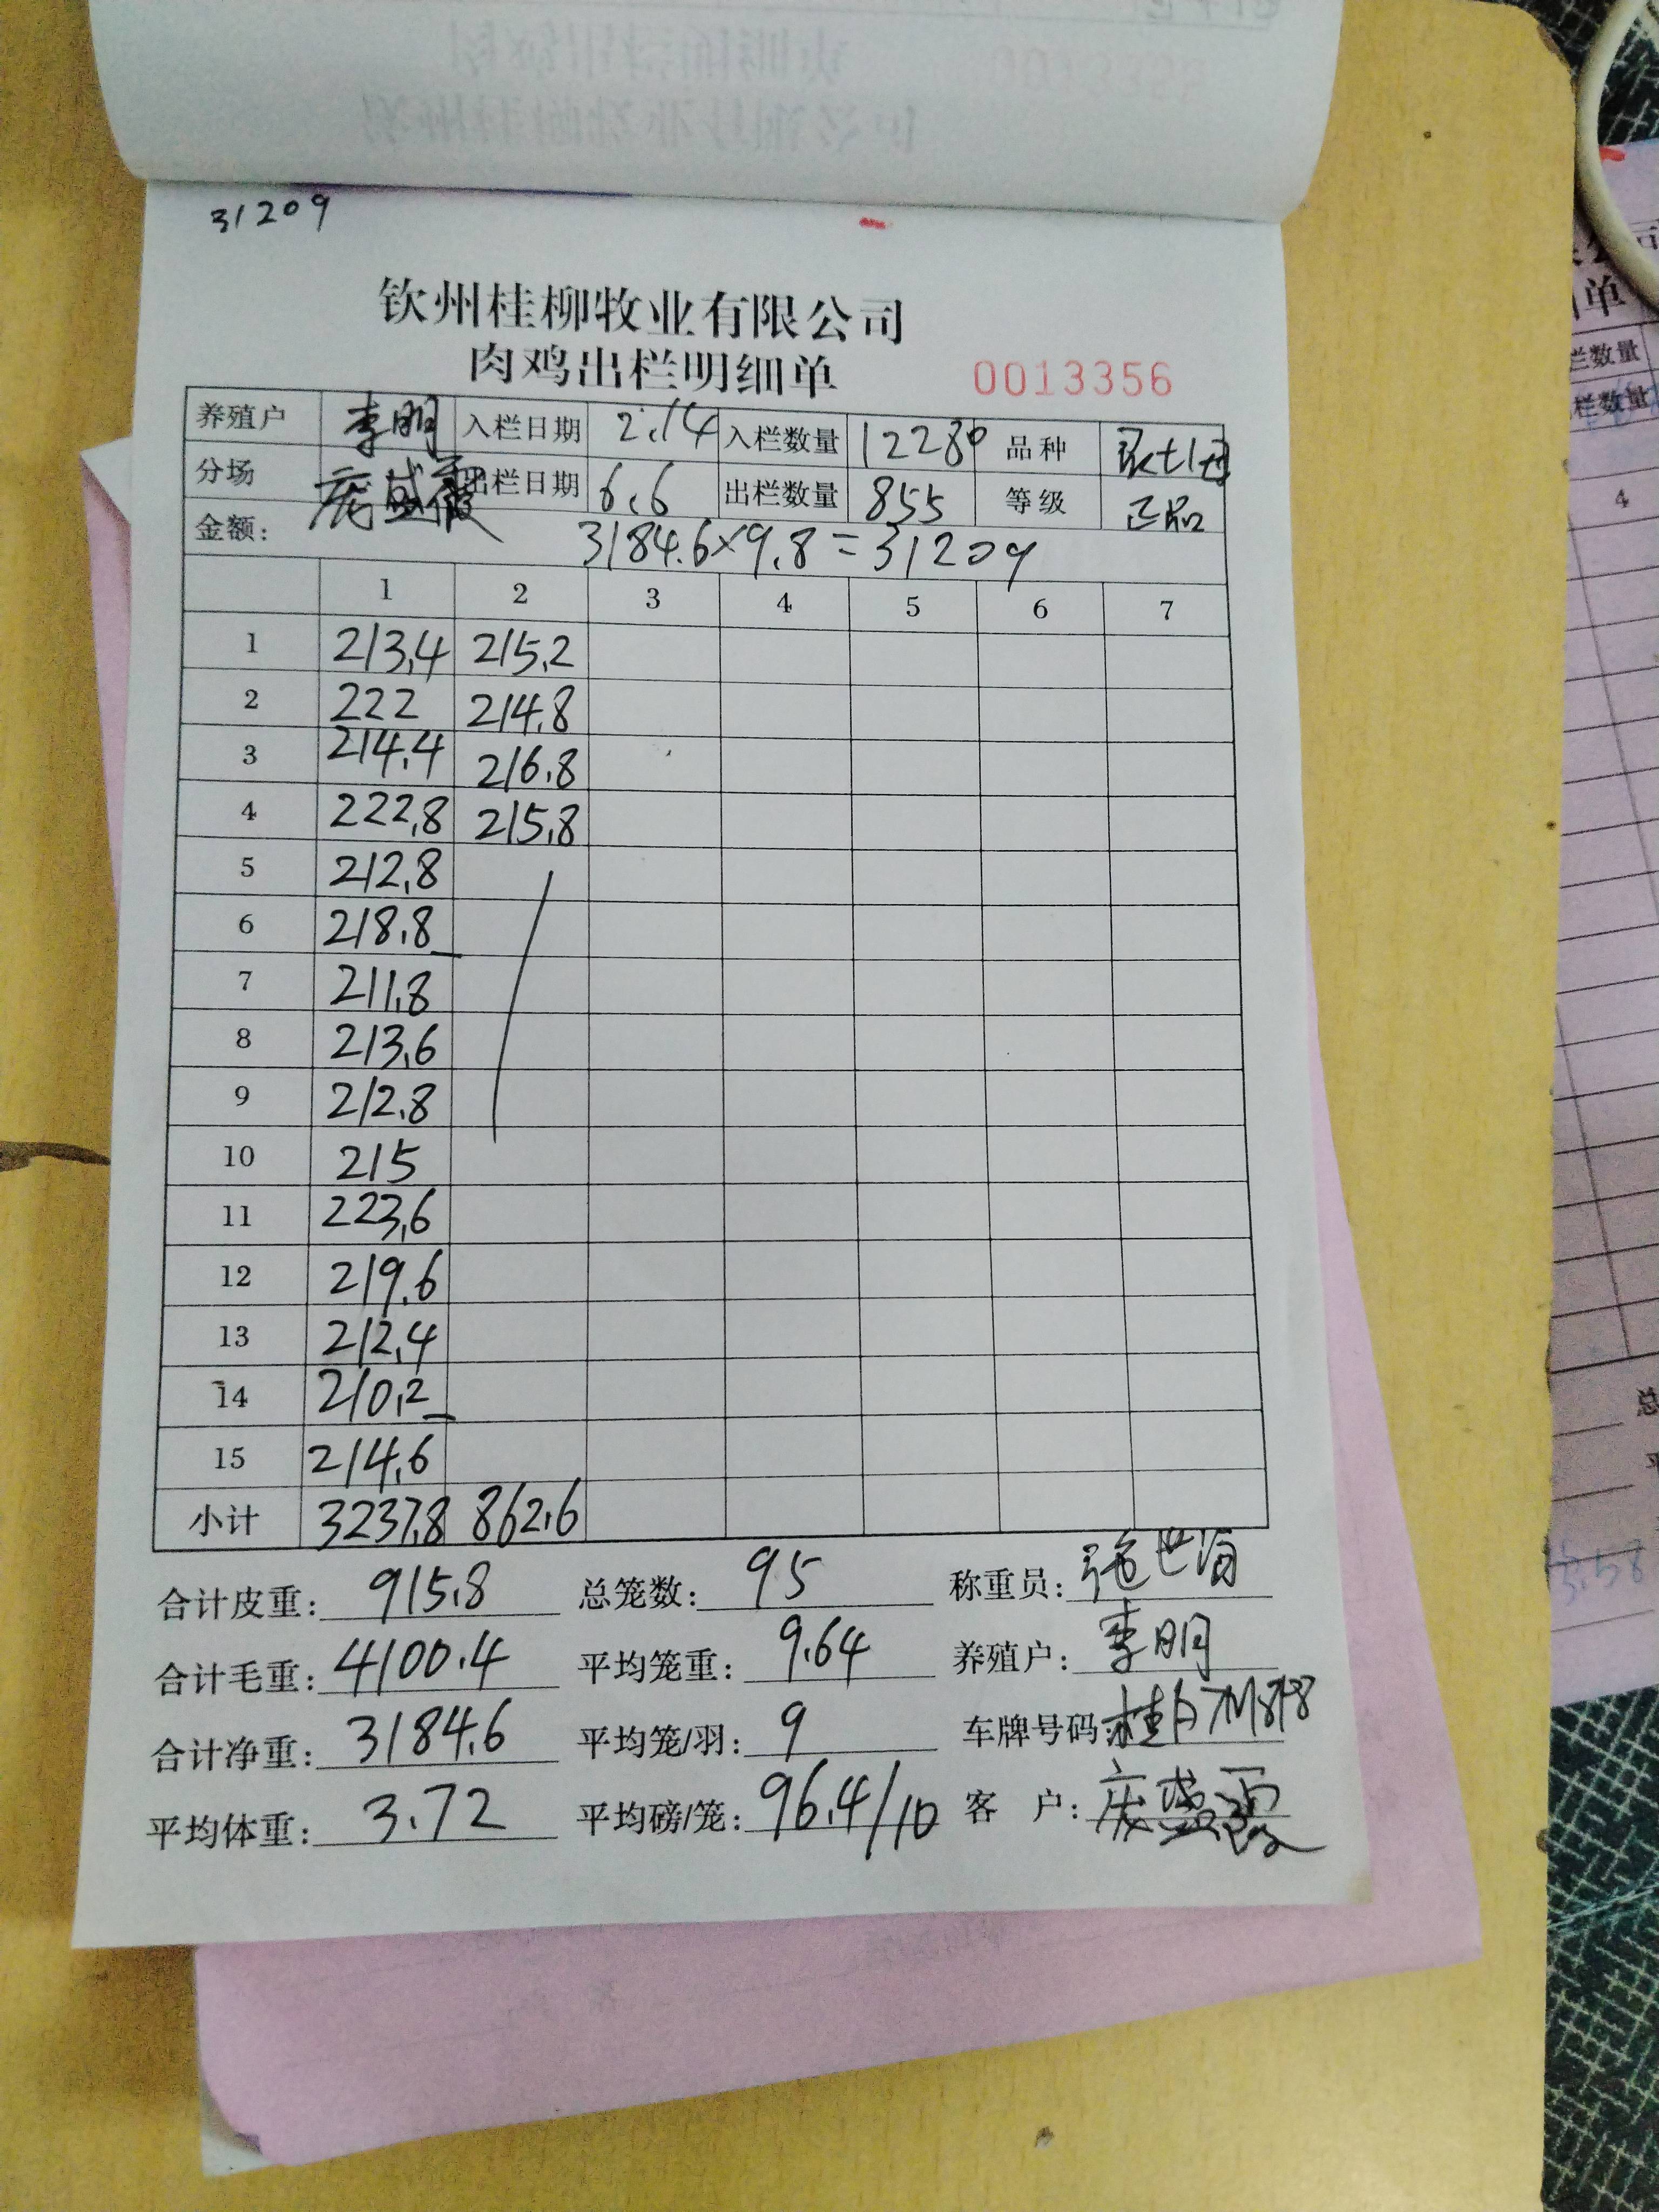 31209
钦州桂柳牧业有限公司
肉鸡出栏明细单 0013356
养殖户 李明 入栏日期 2.14 入栏数量 12280 品种
分场 庞盛霞 出栏日期 6.6 出栏数量 855 等级 正品
金额: 3184.6×9.8=31209
1 2 3 4 5 6 7
1 213.4 215.2
2 222 214.8
3 214.4 216.8
4 222.8 215.8
5 212.8
6 218.8
7 211.8
8 213.6
9 212.8
10 215
11 223.6
12 219.6
13 212.4
14 210.2
15 214.6
小计 3237.8 862.6
合计皮重: 915.8 总笼数: 95 称重员: 张世海
合计毛重: 4100.4 平均笼重: 9.64 养殖户: 李明
合计净重: 3184.6 平均笼/羽: 9 车牌号码:
平均体重: 3.72 平均磅/笼: 96.4/10 客 户: 庞盛霞
栏数量
栏数量
4
单
总